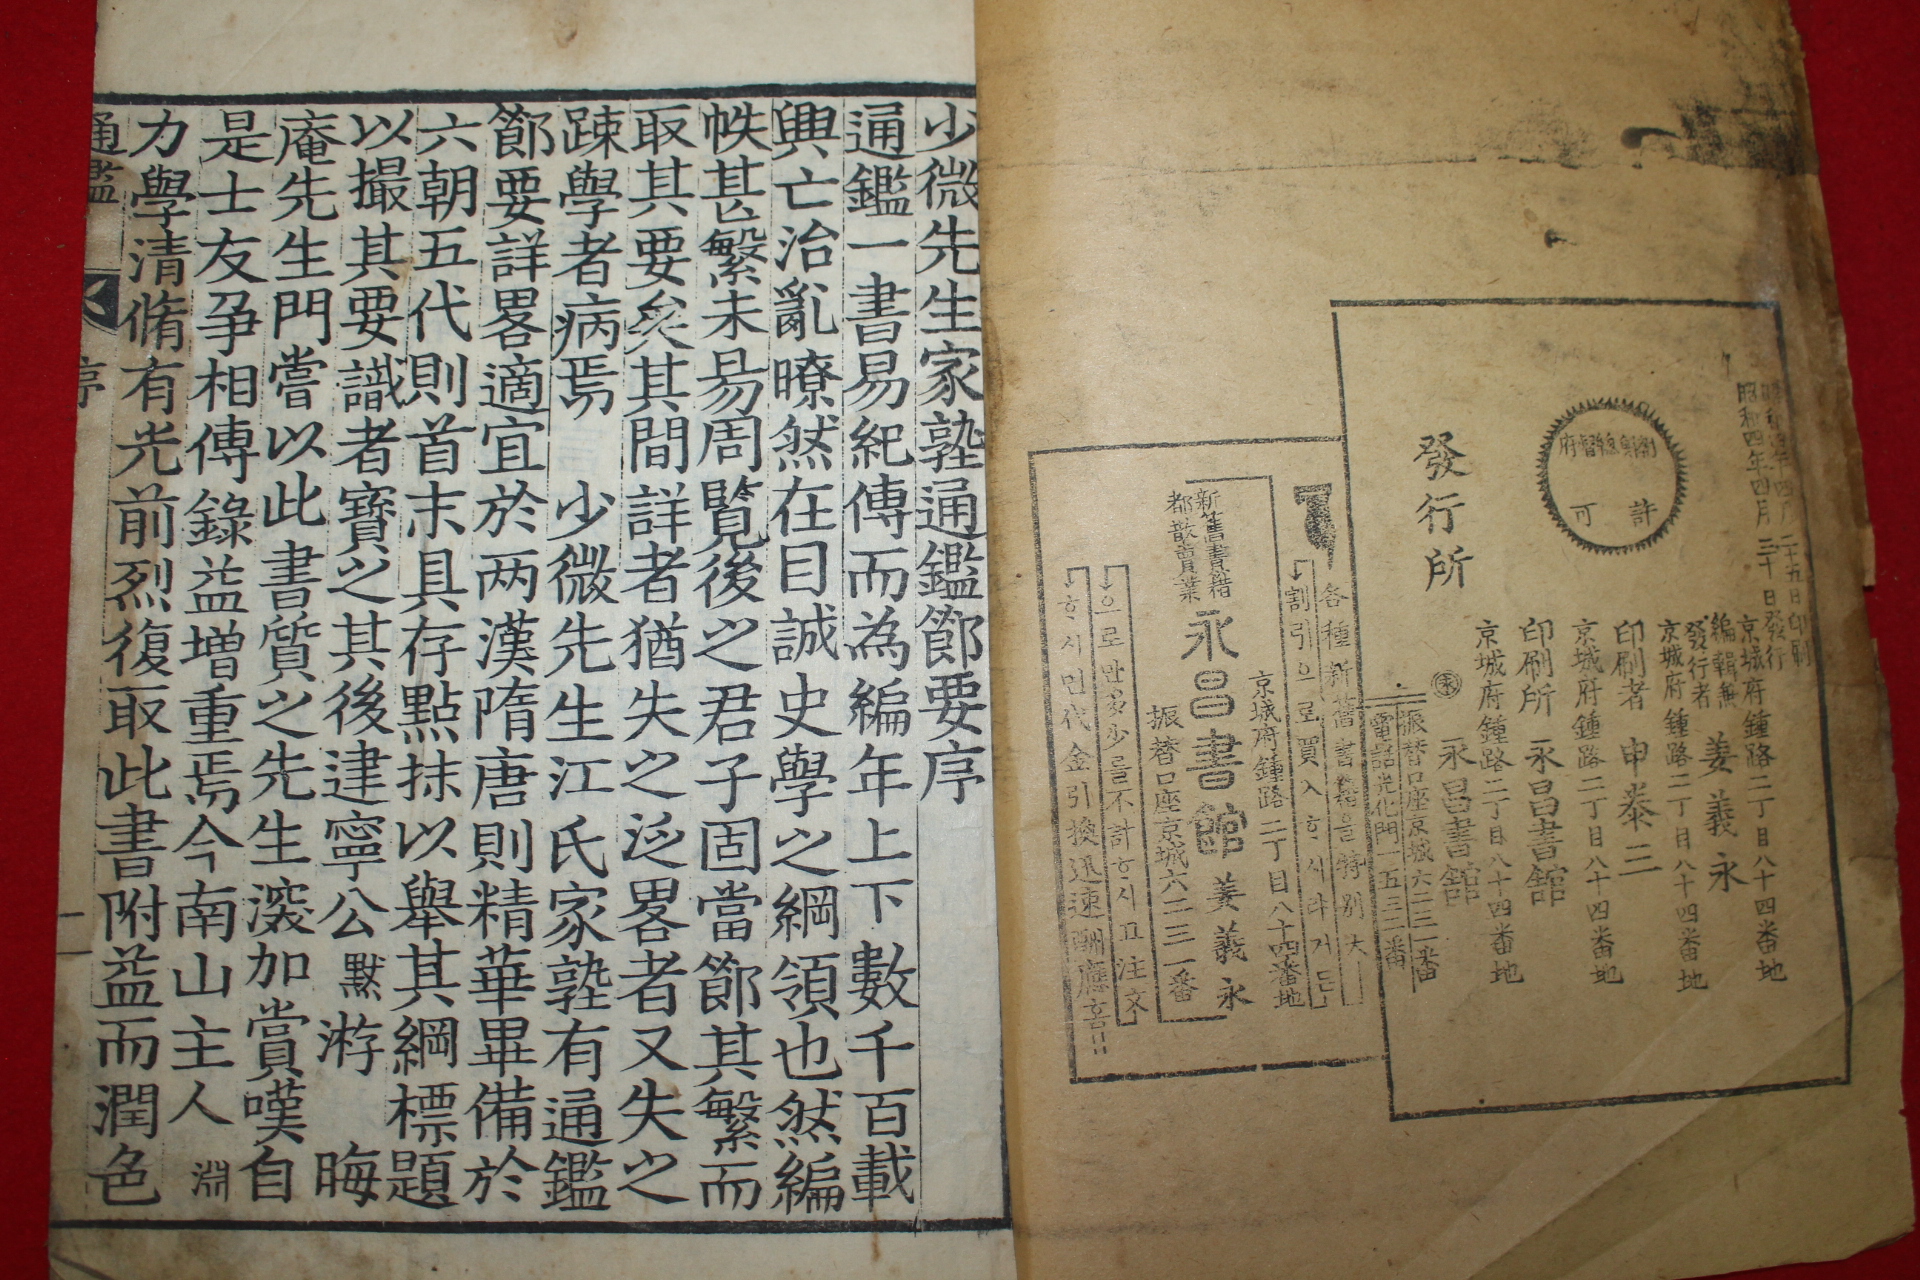 昭和四年四月二十五日印刷
昭和四年四月三十日發行
許可
京城府鍾路二丁目八十四番地
編輯兼
發行者 姜義永
京城府鍾路二丁目八十四番地
印刷者 申泰三
京城府鍾路二丁目八十四番地
印刷所 永昌書館
京城府鍾路二丁目八十四番地
發行所
永昌書館
振替口座京城六二三一番
電話光化門一五三二番
各種新舊書籍을特別大
割引으로買入하시랴거든
京城府鍾路二丁目八十四番地
新舊書籍
都散賣業
永昌書館 姜義永
振替口座京城六二三一番
으로만多少를不計하시고注文
하시면代金引換迅速酬應홈
少微先生家塾通鑑節要序
通鑑一書易紀傳而為編年上下數千百載
興亡治亂暸然在目誠史學之綱領也然編
帙甚繁未易周覽後之君子固當節其繁而
取其要矣其間詳者猶失之泛畧者又失之
踈學者病焉 少微先生江氏家塾有通鑑
節要詳畧適宜於两漢隋唐則精華畢備於
六朝五代則首末具存點抹以舉其綱標題
以撮其要識者寶之其後建寧公默游 晦
庵先生門嘗以此書質之先生深加賞嘆自
是士友爭相傳錄益增重焉今南山主人 淵
力學清脩有光前烈復取此書附益而潤色
通鑑
序
一